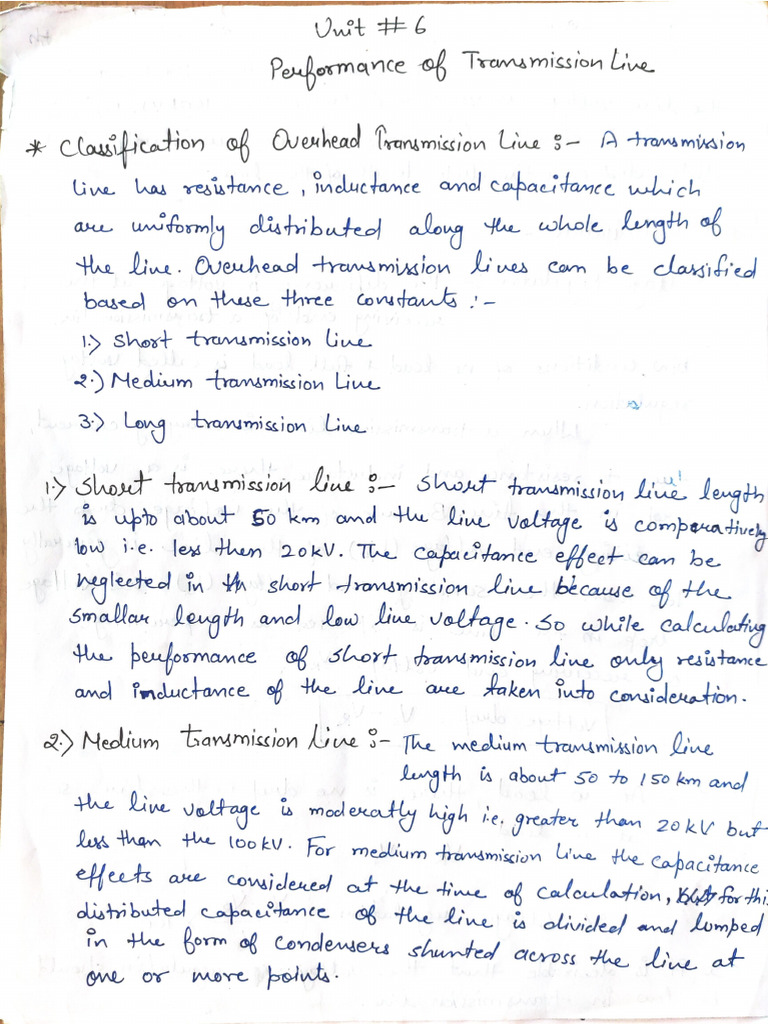 Unit # 6
Performance of Transmission Line
* Classification of Overhead Transmission Line :- A transmission
line has resistance, inductance and capacitance which
are uniformly distributed along the whole length of
the line. Overhead transmission lines can be classified
based on these three constants :-
1.) Short transmission line
2.) Medium transmission Line
3.) Long transmission Line
1.) Short transmission line :- Short transmission line length
is upto about 50 km and the line voltage is comparatively
low i.e. less then 20kV. The capacitance effect can be
neglected in th short transmission line because of the
smallar length and low line voltage. So while calculating
the performance of short transmission line only resistance
and inductance of the line are taken into consideration.
2.) Medium transmission Line :- The medium transmission line
length is about 50 to 150 km and
the line voltage is moderatly high i.e. greater than 20 kV but
less than the 100kV. For medium transmission line the capacitance
effects are considered at the time of calculation, for this
distributed capacitance of the line is divided and lumped
in the form of condensers shunted across the line at
one or more points.